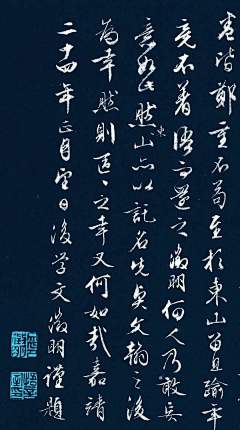 卷皆鄭重不苟至於東山留且踰年
竟不著語而還之徵明何人乃敢
意如此然東山亦以託名先文翰之後
為幸然則區區之幸又何如哉嘉靖
二十四年正月望日後學文徵明謹題